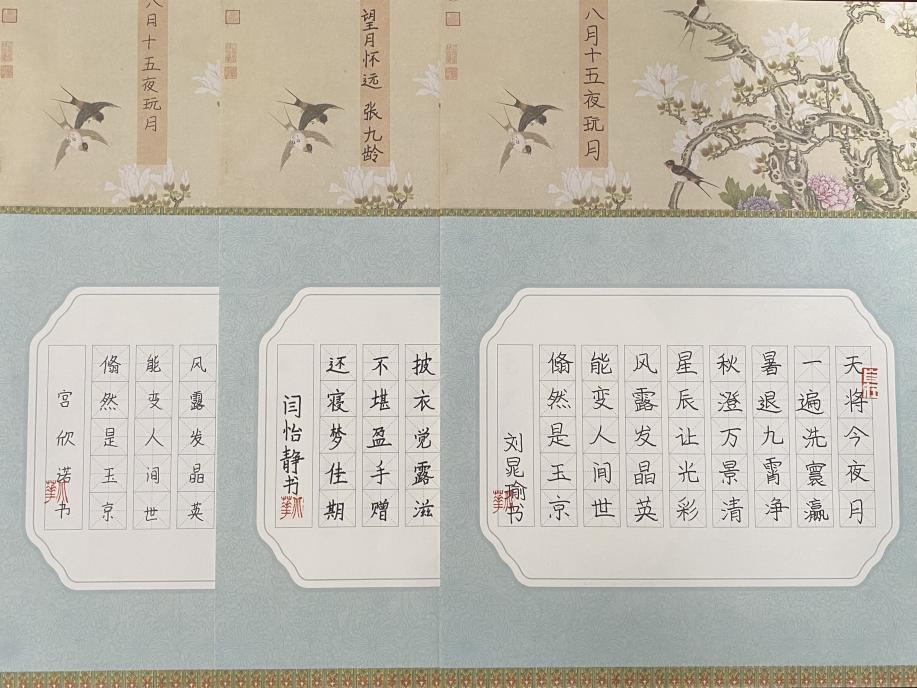 八月十五夜玩月
天将今夜月
一遍洗寰瀛
暑退九霄净
秋澄万景清
星辰让光彩
风露发晶英
能变人间世
翛然是玉京
刘晁瑜书
望月怀远 张九龄
披衣觉露滋
不堪盈手赠
还寝梦佳期
闫怡静书
八月十五夜玩月
风露发晶英
能变人间世
翛然是玉京
宫欣诺书